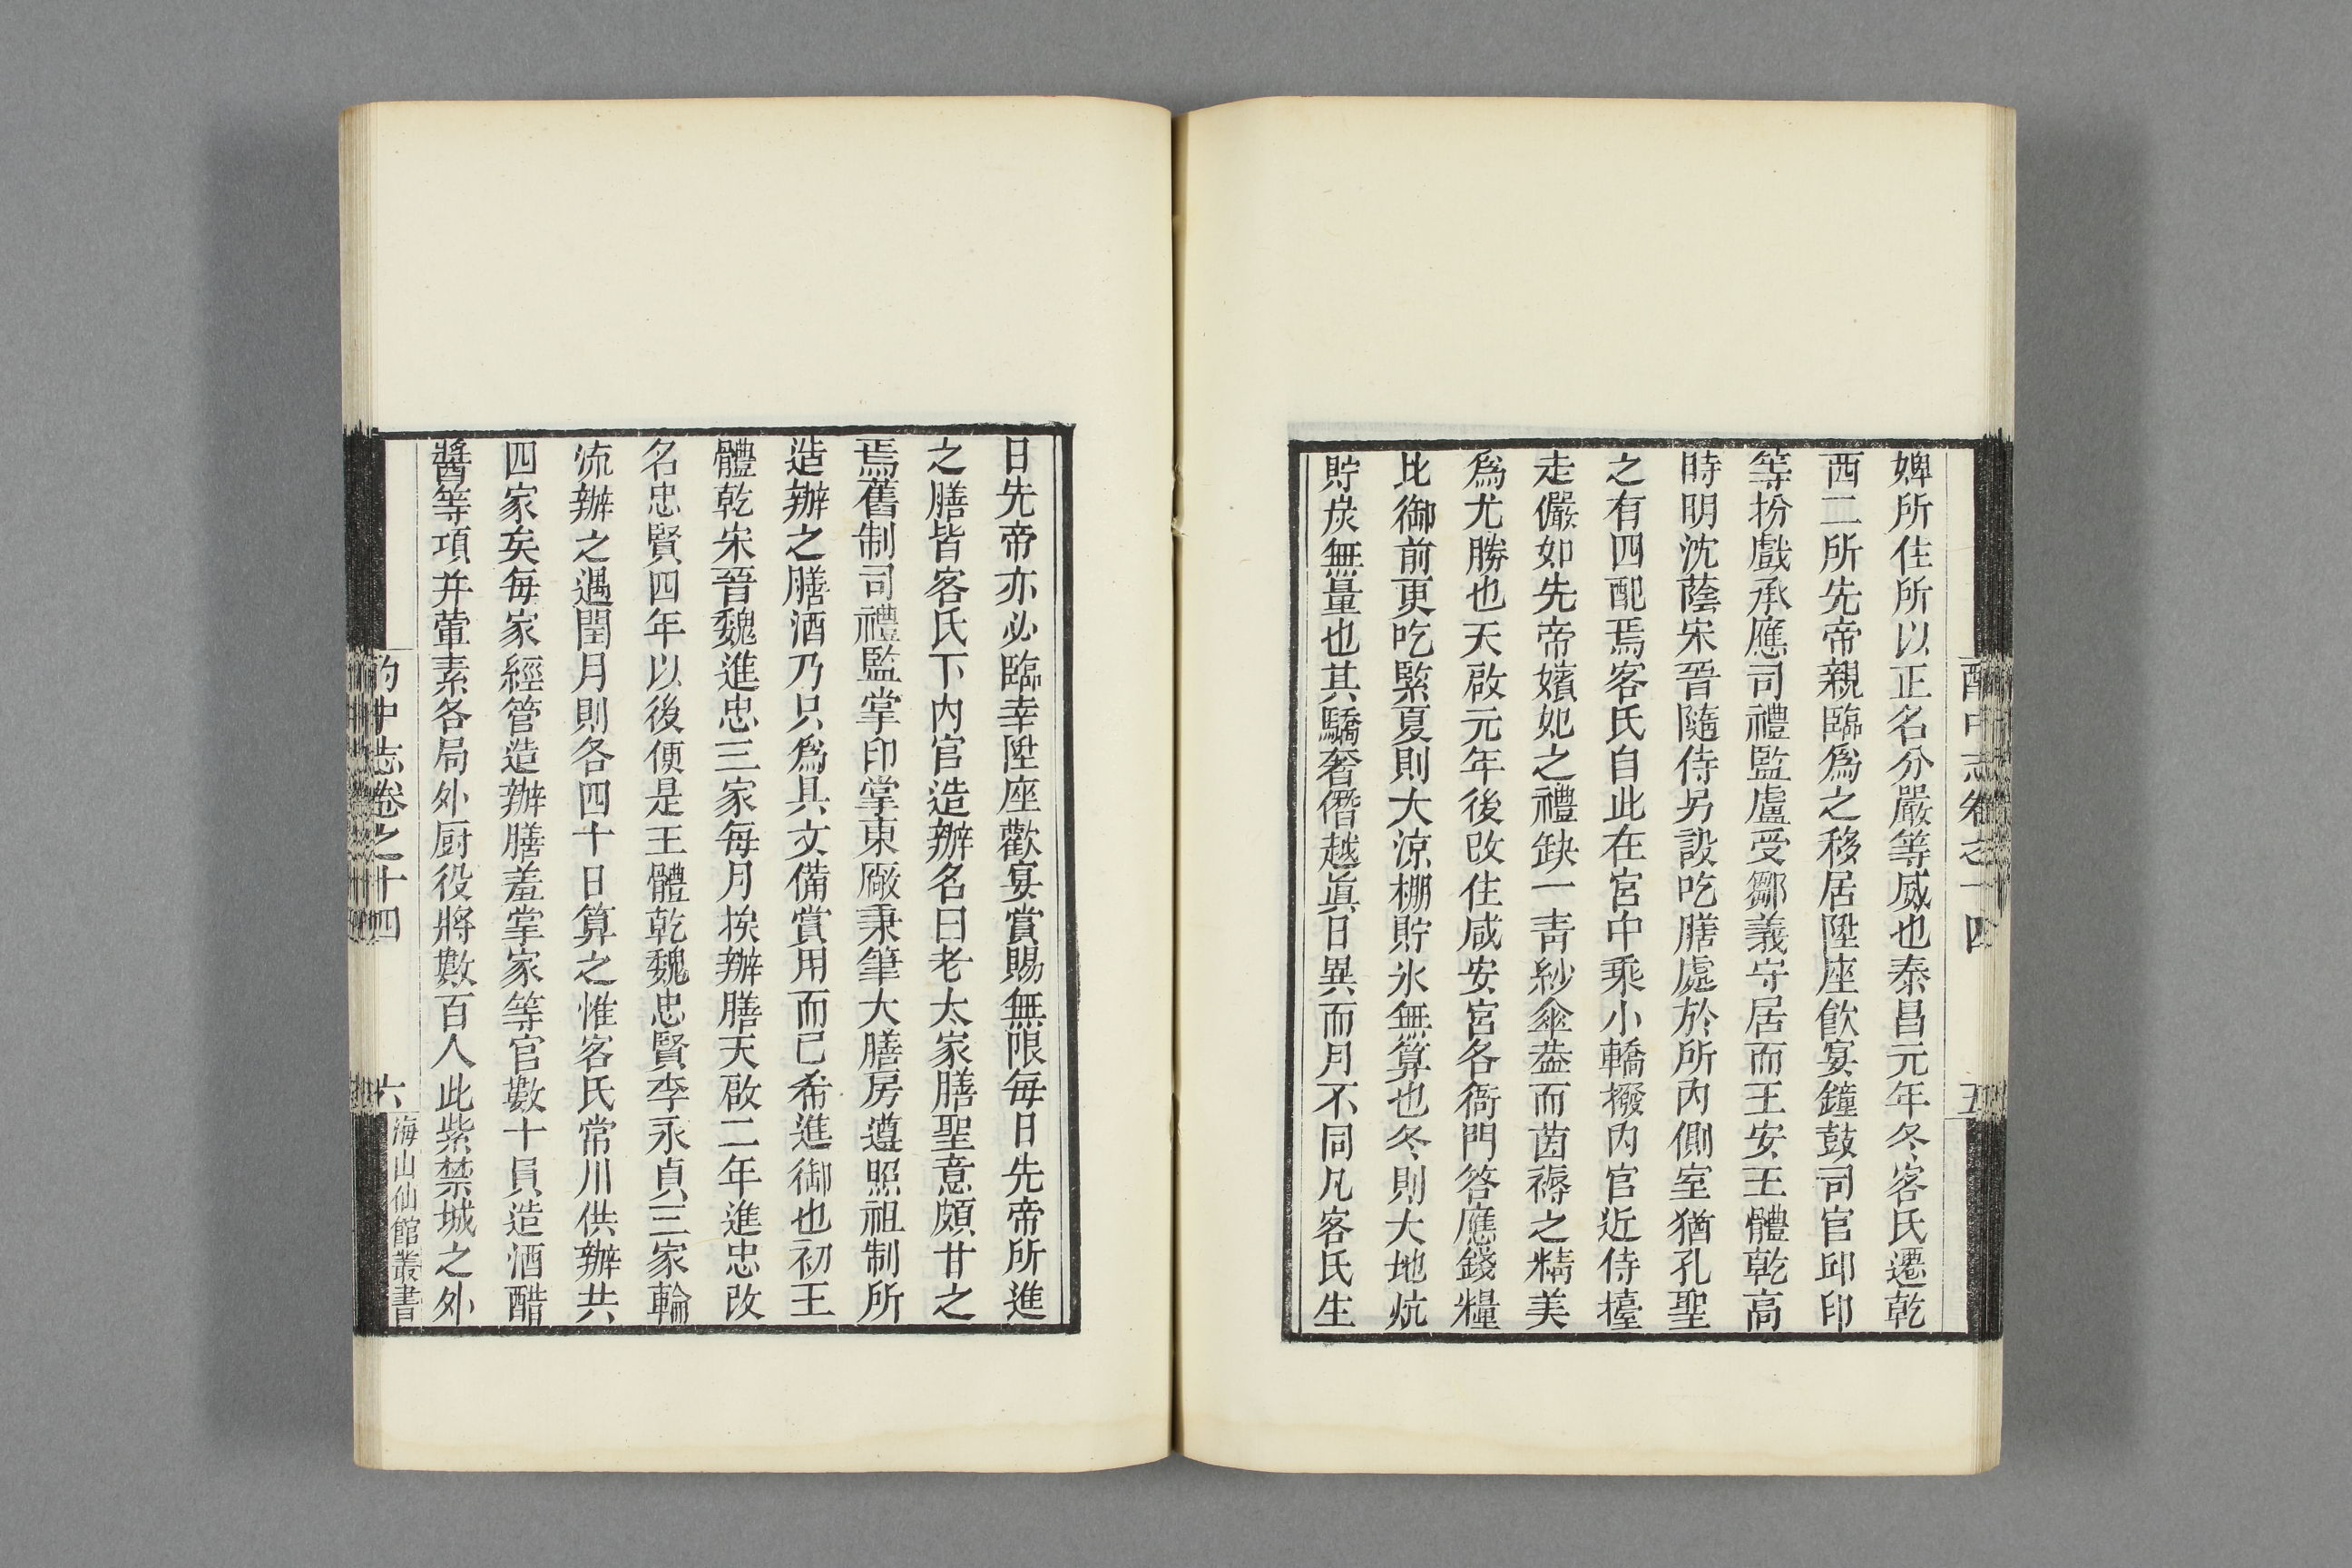 酌中志卷之十四
五
婢所住所以正名分嚴等威也泰昌元年冬客氏遷乾
西二所先帝親臨爲之移居陞座飮宴鐘鼓司官邱印
等扮戲承應司禮監盧受鄒義守居而王安王體乾高
時明沈蔭宋晉隨侍另設吃膳處於所内側室猶孔聖
之有四配焉客氏自此在宮中乘小轎撥内官近侍擡
走儼如先帝嬪妃之禮缺一靑紗傘葢而茵褥之精美
爲尤勝也天啟元年後改住咸安宮各衙門答應錢糧
比御前更吃緊夏則大涼棚貯氷無算也冬則大地炕
貯炭無量也其驕奢僭越眞日異而月不同凡客氏生
日先帝亦必臨幸陞座歡宴賞賜無限毎日先帝所進
之膳皆客氏下内官造辦名曰老太家膳聖意頗甘之
焉舊制司禮監掌印掌東厰秉筆大膳房遵照祖制所
造辦之膳酒乃只爲具文備賞用而已希進御也初王
體乾宋晉魏進忠三家每月挨辦膳天啟二年進忠改
名忠賢四年以後便是王體乾魏忠賢李永貞三家輪
流辦之遇閏月則各四十日算之惟客氏常川供辦共
四家矣毎家經管造辦膳羞掌家等官數十員造酒醋
醬等項并葷素各局外厨役將數百人此紫禁城之外
酌中志卷之十四
六
海山仙館叢書